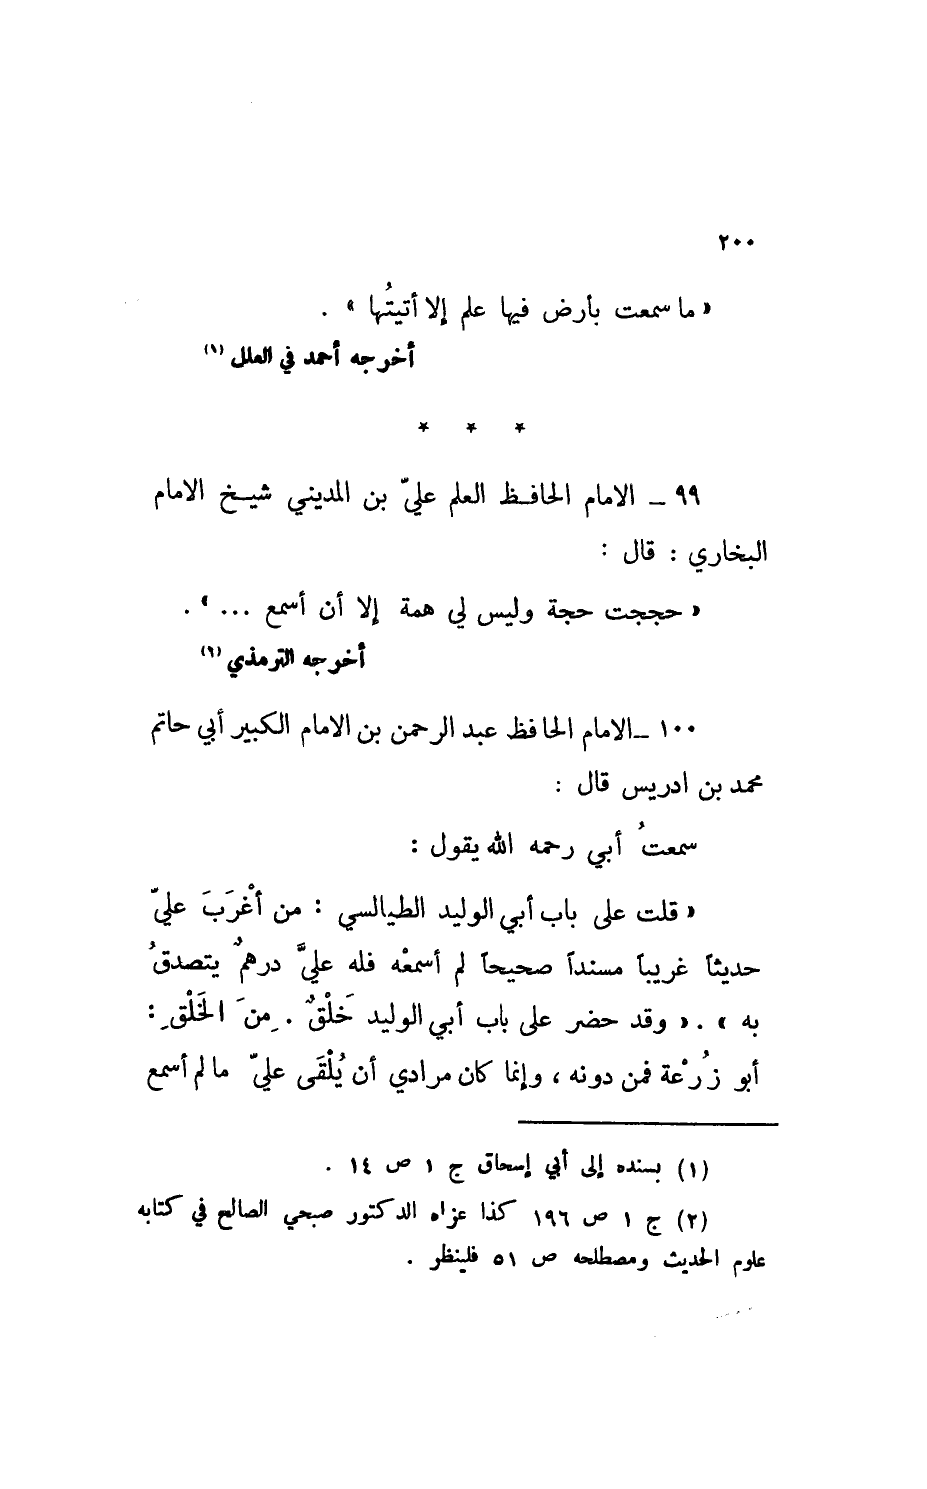 ٢٠٠
« ما سمعت بأرض فيها علم إلا أتيتُها » .
أخرجه أحمد في العلل (١)
* * *
٩٩ ـ الامام الحافظ العلم عليّ بن المديني شيخ الامام
البخاري : قال :
« حججت حجة وليس لي همة إلا أن أسمع ... » .
أخرجه الترمذي (٢)
١٠٠ ـ الامام الحافظ عبد الرحمن بن الامام الكبير أبي حاتم
محمد بن ادريس قال :
سمعتُ أبي رحمه الله يقول :
« قلت على باب أبي الوليد الطيالسي : من أغْرَبَ عليّ
حديثاً غريباً مسنداً صحيحاً لم أسمعْه فله عليَّ درهمٌ يتصدقُ
به » . « وقد حضر على باب أبي الوليد خَلْقٌ . مِنَ الخَلْقِ :
أبو زُرْعة فمن دونه ، وإنما كان مرادي أن يُلْقَى عليّ ما لم أسمع
(١) بسنده إلى أبي إسحاق ج ١ ص ١٤ .
(٢) ج ١ ص ١٩٦ كذا عزاه الدكتور صبحي الصالح في كتابه
علوم الحديث ومصطلحه ص ٥١ فلينظر .